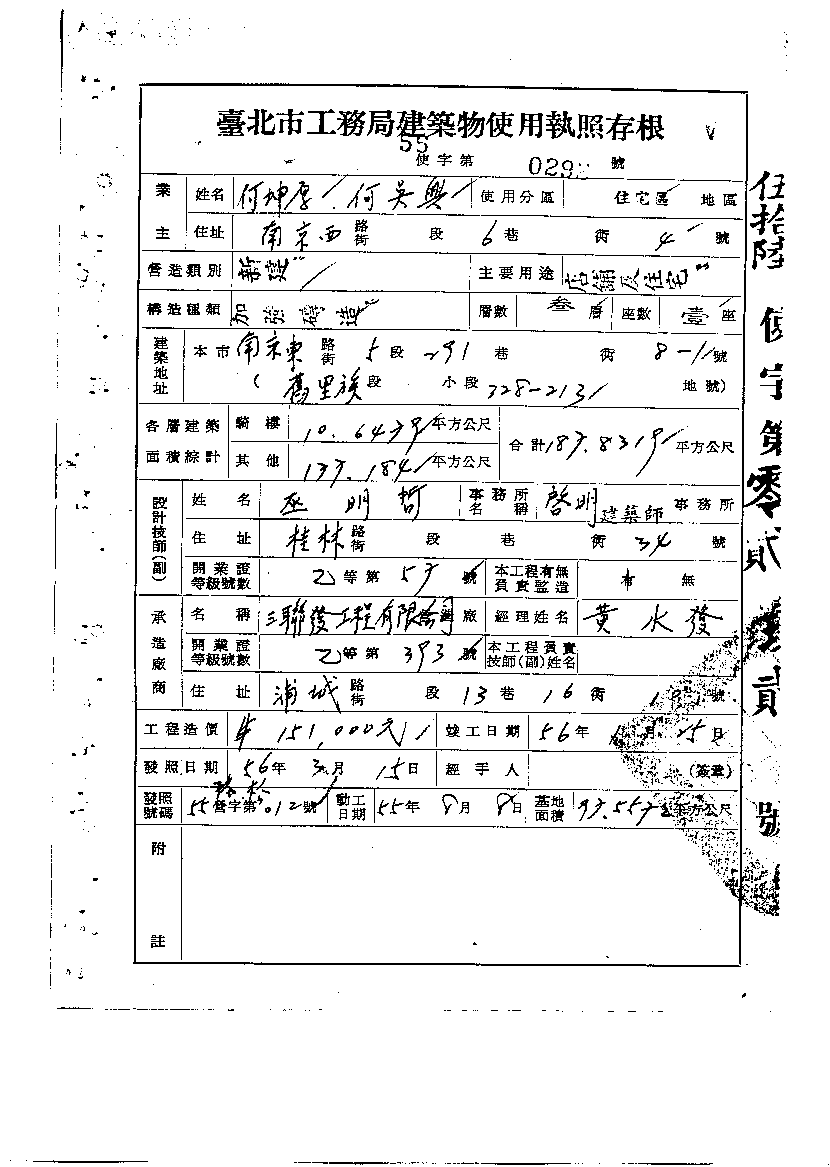 臺北市工務局建築物使用執照存根
55
使字第 029 號
業主 姓名 何坤厚 何吳興 使用分區 住宅區 地區
住址 南京西 路街 段 6 巷 衖 4 號
營造類別 新建 主要用途 店舖及住宅
構造種類 加強磚造 層數 叁層 座數 壹座
建築地址 本市 南京東 路街 5 段 291 巷 衖 8-1 號
( 舊里族 段 小段 328-213 地號)
各層建築面積綜計 騎樓 10.6479 平方公尺 合計 187.8319 平方公尺
其他 177.184 平方公尺
設計技師(副) 姓名 巫明哲 事務所名稱 啓明建築師 事務所
住址 桂林 路街 段 巷 衖 34 號
開業證等級號數 乙等第 57 號 本工程有無負責監造 有 無
承造廠商 名稱 三聯發工程有限公司 廠 經理姓名 黃水發
開業證等級號數 乙等第 393 號 本工程負責技師(副)姓名
住址 浦城 路街 段 13 巷 16 衖 號
工程造價 151,000元 竣工日期 56年 月 25日
發照日期 56年 3月 15日 經手人 (簽章)
發照號碼 55 營字第 012 號 動工日期 55年 8月 8日 基地面積 97.557 平方公尺
附註
伍拾陸 使字第零貳 貳 號